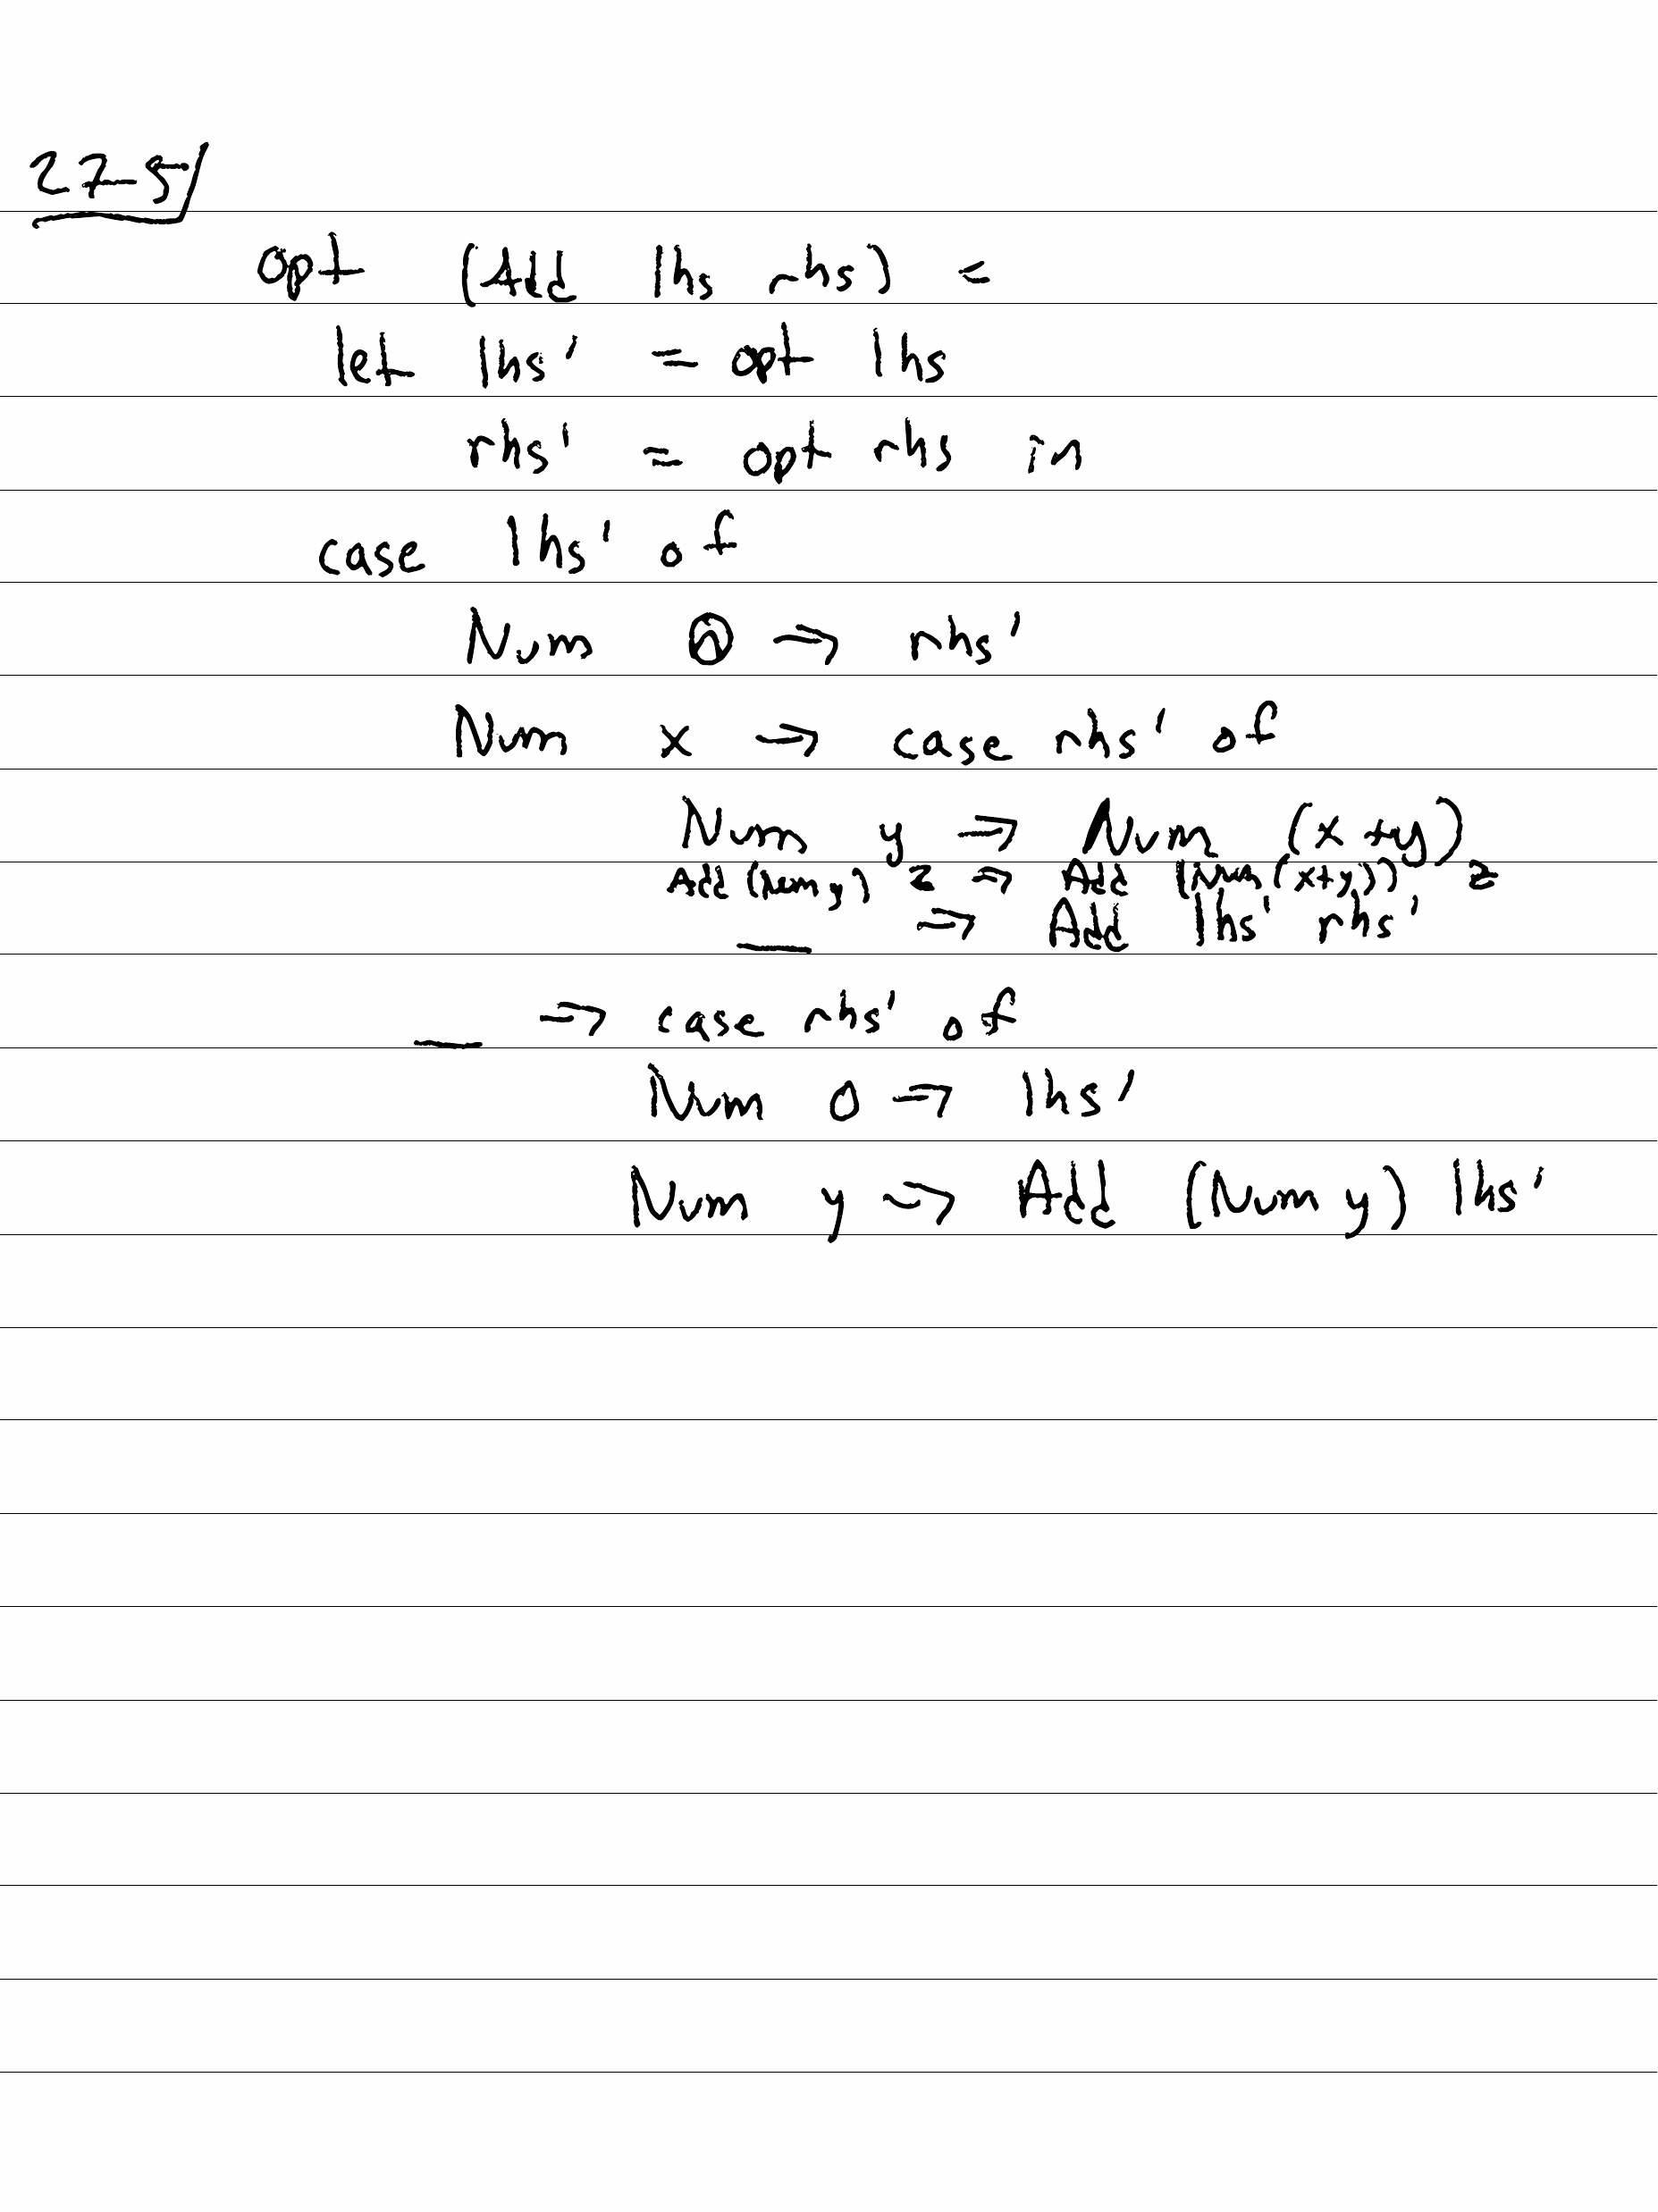 27-5/
opt (Add lhs rhs) =
let lhs' = opt lhs
rhs' = opt rhs in
case lhs' of
Num 0 => rhs'
Num x => case rhs' of
Num y => Num (x+y)
Add (Num y) z => Add (Num (x+y)) z
_ => Add lhs' rhs'
_ => case rhs' of
Num 0 => lhs'
Num y => Add (Num y) lhs'